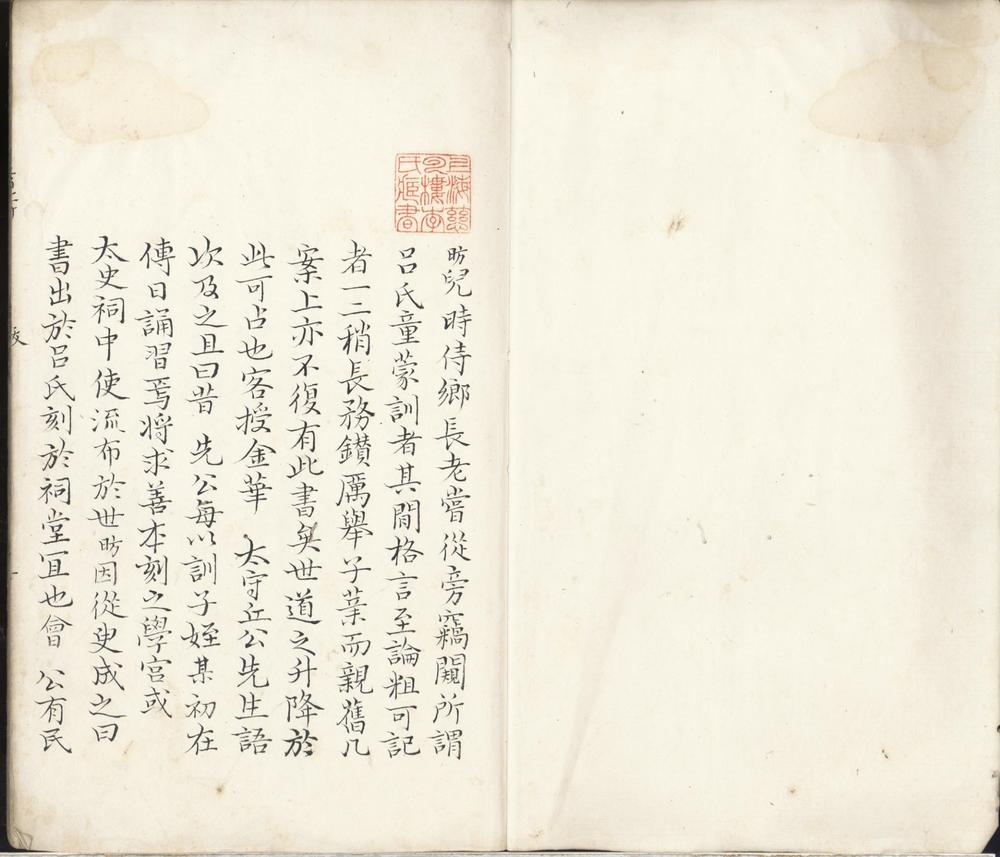 昉兒時侍鄉長老嘗從旁竊闚所謂
呂氏童蒙訓者其間格言至論粗可記
者一二稍長務鑚厲舉子業而親舊几
案上亦不復有此書矣世道之升降於
此可占也客授金華 太守丘公先生語
次及之且曰昔 先公每以訓子姪某初在
傳日誦習焉将求善本刻之學宮或
太史祠中使流布於世昉因從臾成之曰
書出於呂氏刻於祠堂冝也會 公有民